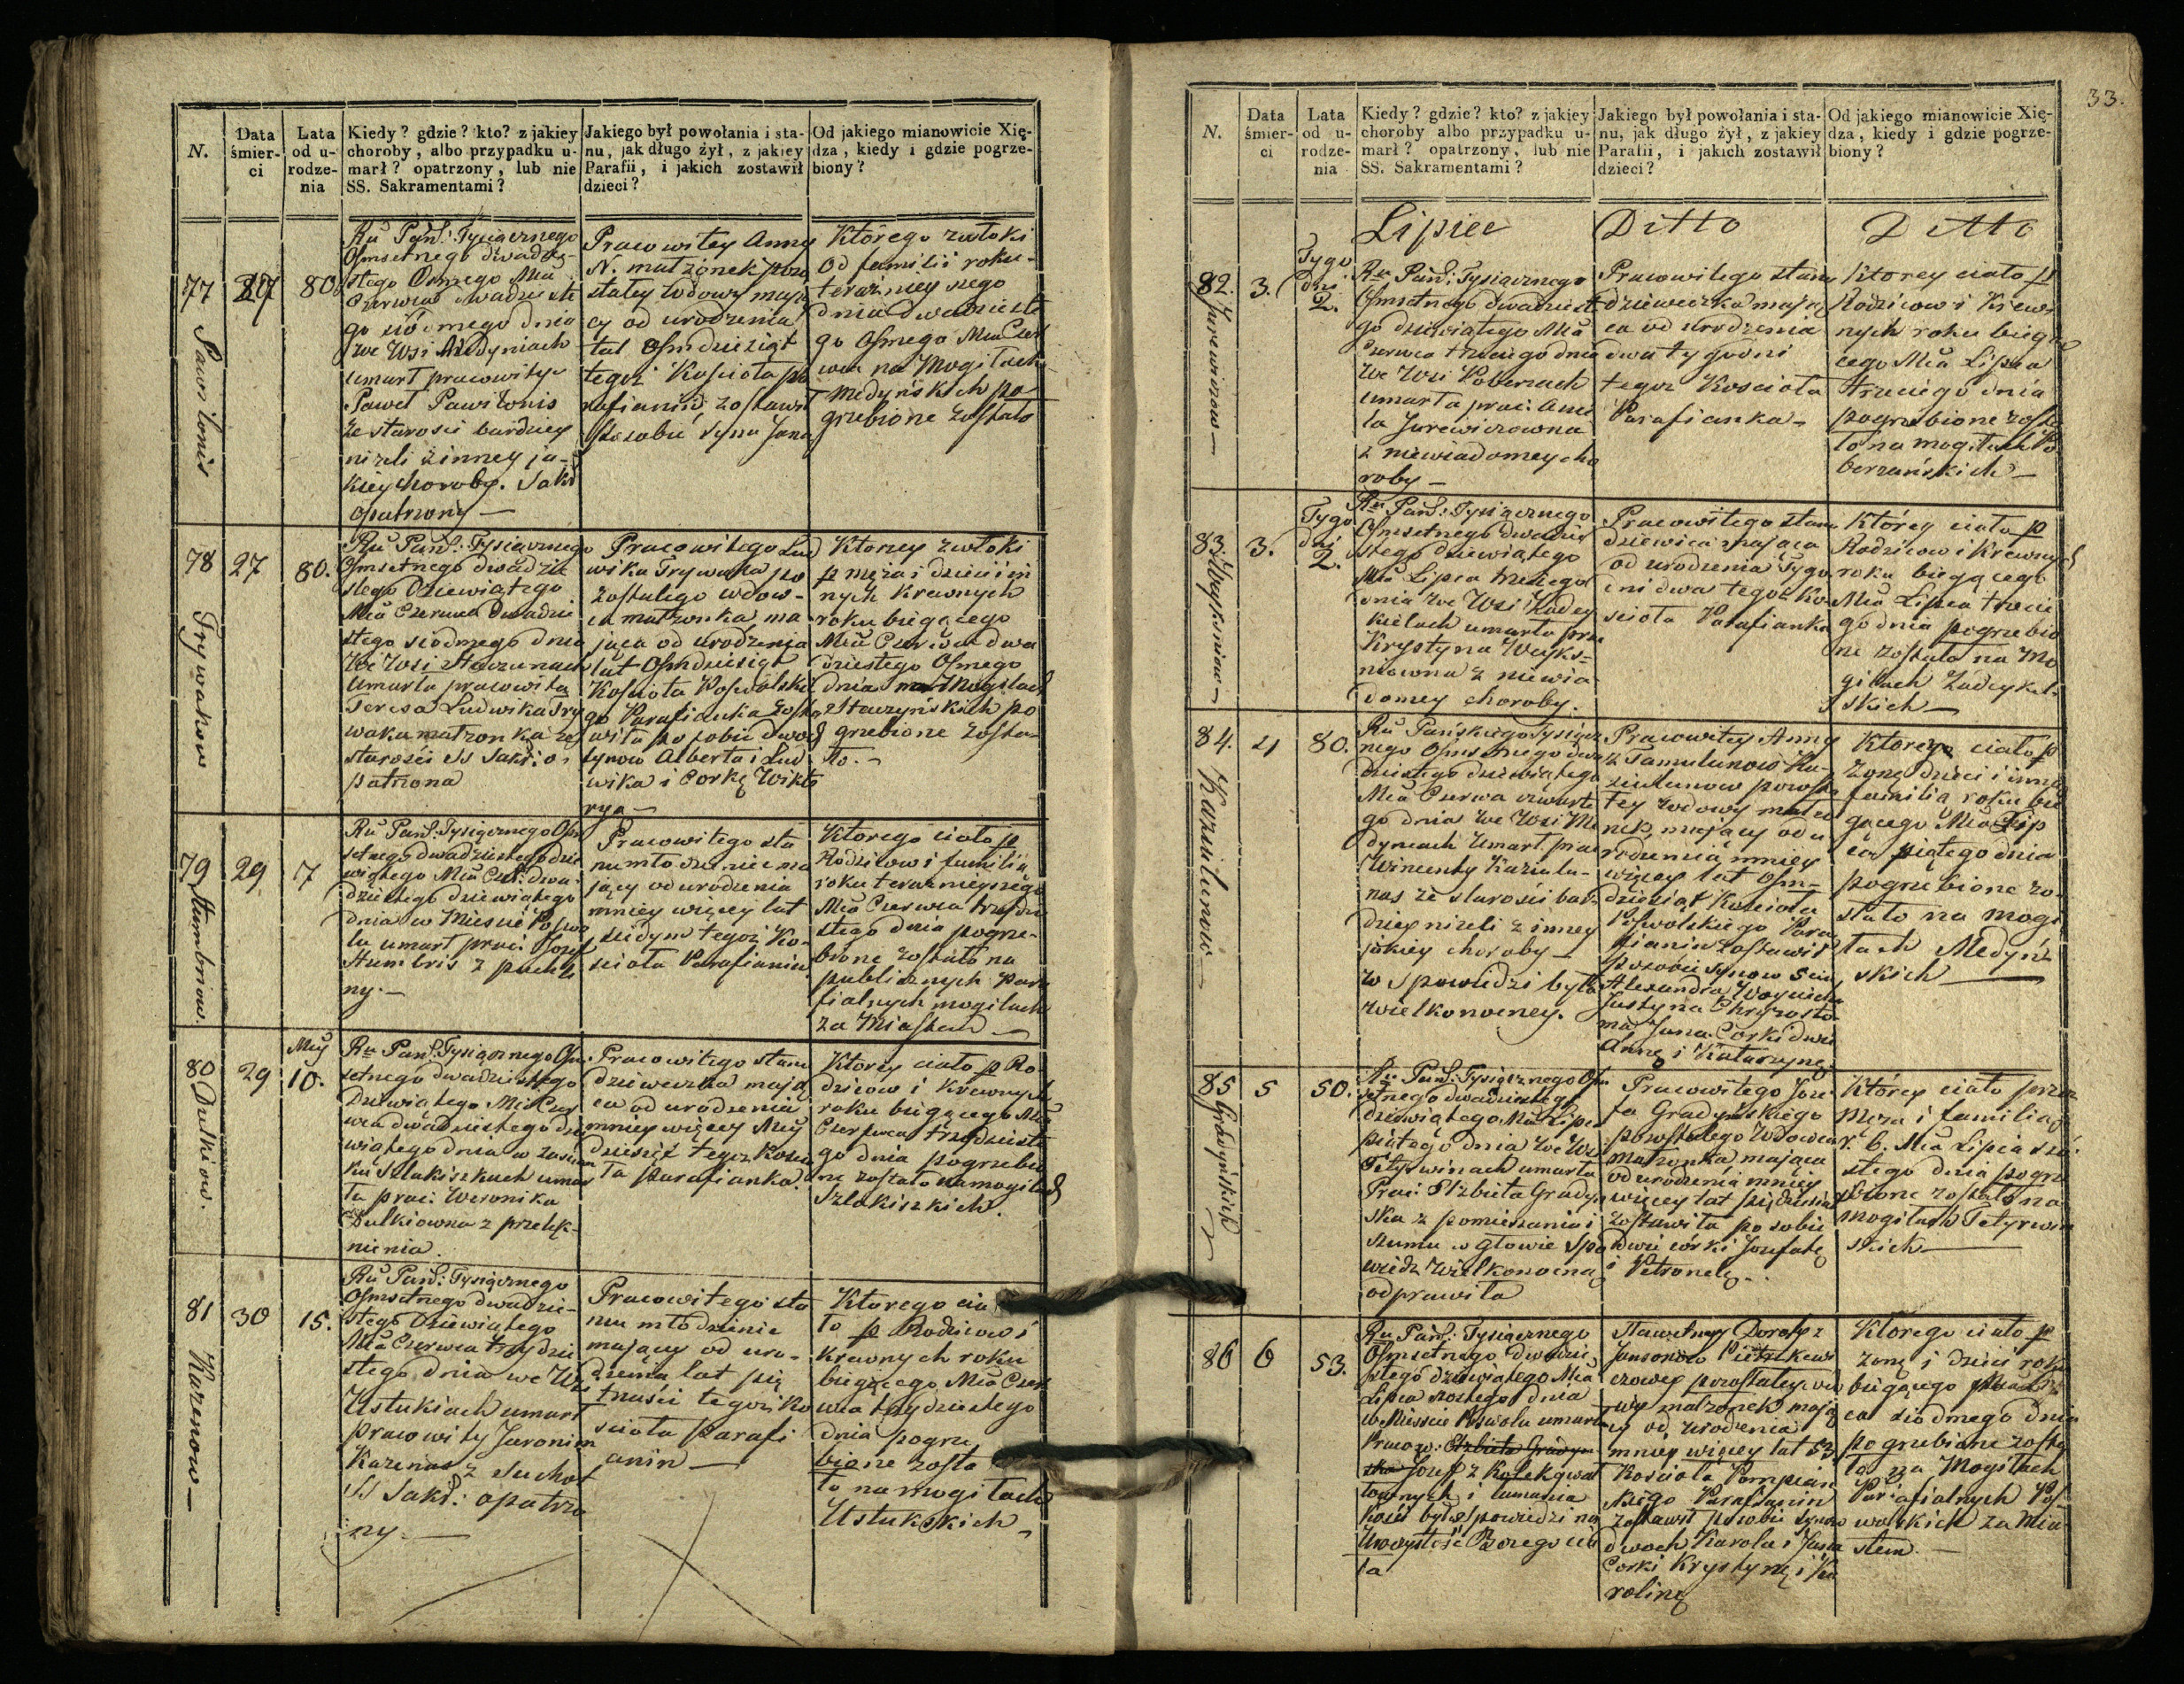 N.
Data śmier-ci
Lata od u-rodze-nia
Kiedy? gdzie? kto? z jakiey
choroby, albo przypadku u-
marł? opatrzony, lub nie
SS. Sakramentami?
Jakiego był powołania i sta-
nu, jak długo żył, z jakiey
Parafii, i jakich zostawił
dzieci?
Od jakiego mianowicie Xię-
dza, kiedy i gdzie pogrze-
biony?
77
27
80
Pawilonis
Ru Pań: Tysiącznego
Osmsetnego dwadzie-
stego Osmego Mca
Czerwca dwadzieste
go siódmego dnia
we Wsi Medyniach
umarł pracowity
Paweł Pawilonis
ze starości bardziey
niżeli z inney ja-
kiey choroby. Sakr
opatrzony —
Pracowitey Anny
N. małżonek pozo
stałey wdowy mają
cy od urodzenia
lat Osmdziesiąt
tegoż Kościoła pa
rafianin zostawił
po sobie syna Jana
Którego zwłoki
Od familii roku
teraznieyszego
dnia dwadzieste
go Osmego Mca Czer
wca na Mogiłach
Medyńskich po
grzebione zostało
78
27
80.
Trywakow
Ru Pań: Tysiącznego
Osmsetnego dwadzie
stego Dziewiątego
Mca Czerwca Dwadzie
stego siódmego dnia
We Wsi Staczunach
Umarła pracowita
Teresa Ludwika Try
waka matronka ze
starości SS Sakr: o
patrzona
Pracowitego Lud
wika Trywaka po
zostałego wdow-
ca matronka, ma
jąca od urodzenia
lat Osmdziesiąt
Kościoła Poswolskie
go Parafianka zosta
wiła po sobie dwóch
synow Alberta i Lud
wika i Corkę Wikto
ryą —
Ktorey zwłoki
p męża i dzieci in
nych krewnych
roku biegącego
Mca Czerwca dwa
dziestego Osmego
dnia na Mogiłach
Staczyńskich po
grzebione zosta-
ło. —
79
29
7
Stumbrisow.
Ru Pań: Tysiącznego Osm
setnego dwadziestego dzie
wiątego Mca Czer: dwa
dziestego dziewiątego
dnia w Miescie Poswo
lu umarł prac: Jozef
Stumbris z puchli
ny. —
Pracowitego sta
nu młodzieniec ma
jący od urodzenia
mniey więcey lat
siedym tegoż Ko-
scioła Parafianin
Ktorego ciało p
Rodzicow i familią
roku teraznieyszego
Mca Czerwca trzydzie
stego dnia pogrze-
bione zostało na
publicznych Para
fialnych mogiłach
za Miastem —
80
29
Mcy
10.
Dulkiow.
Ru Pań: Tysiącznego Osm
setnego dwadziestego
Dziewiątego Mca Czer
wca dwadziestego dzie
wiątego dnia w zaścian
ku Szlakiszkach umar
ła prac: Weronika
Dulkiowna z przelęk-
nienia.
Pracowitego stanu
dzieweczka mają
ca od urodzenia
mniey więcey Mcy
dziesięć tegoz Koscio
ła parafianka.
Ktorey ciało p Ro-
dzicow i krewnych
roku biegącego Mca
Czerwca trzydzieste
go dnia pogrzebio
ne zostało na mogiłach
Szlakiszkich.
81
30
15.
Kazenow —
Ru Pań: Tysiącznego
Osmsetnego dwadzie-
stego Dziewiątego
Mca Czerwca Trzydzie
stego dnia we Wsi
Ustukiach umarł
pracowity Jeronim
Kazenas z suchot
SS Sakr: opatrzo
ny. —
Pracowitego sta
nu młodzieniec
mający od uro-
dzenia lat pię
tnaści tegoż Ko
scioła parafi
anin —
Ktorego cia
ło p Rodzicow i
krewnych roku
biegącego Mca Czer
wca trzydziestego
dnia pogrze
bione zosta
ło na mogiłach
Ustukskich —
33.
N.
Data śmier-ci
Lata od u-rodze-nia
Kiedy? gdzie? kto? z jakiey
choroby albo przypadku u-
marł? opatrzony, lub nie
SS. Sakramentami?
Jakiego był powołania i sta-
nu, jak długo żył, z jakiey
Parafii, i jakich zostawił
dzieci?
Od jakiego mianowicie Xię-
dza, kiedy i gdzie pogrze-
biony?
Lipiec
Ditto
Ditto
82.
3.
Tygo
dni
2.
Jurewiczow —
Ru Pań: Tysiącznego
Osmsetnego dwadzieste
go dziewiątego Mca
Czerwca trzeciego dnia
We Wsi Poberzach
umarła prac: Anie
la Jurewiczowna
z niewiadomey cho
roby —
Pracowitego stanu
dzieweczka mają
ca od urodzenia
dwa tygodni
tegoz Kosciola
Parafianka —
Ktorey ciało p
Rodzicow i Krew
nych roku biegą
cego Mca Lipca
trzeciego dnia
pogrzebione zosta
ło na mogiłach Po
berzańskich —
83
3.
Tygo
dni
2.
Ru Pań: Tysiącznego
Osmsetnego dwadzie
stego dziewiątego
Mca Lipca trzeciego
dnia We Wsi Zadey
kielach umarła prac
Krystyna Weyks-
niowna z niewia
domey choroby.
Pracowitego stanu
dziewica mająca
od urodzenia Tygo
dni dwa tegoż Ko
scioła Parafianka
Którey ciało p
Rodzicow i krewnych
roku biegącego
Mca Lipca trzecie
go dnia pogrzebio
ne zostało na Mo
giłach Zadeykel-
skich —
84.
4
80.
Kaziulunow —
Ru Pańskiego Tysiącz
nego Osmsetnego dwa
dziestego dziewiątego
Mca Czerwca czwarte
go dnia We Wsi Me
dyniach Umarł prac
Wincenty Kaziulu-
nas ze starości bar
dziey nizeli z inney
jakiey choroby —
w spowiedzi była
wielkonocney.
Pracowitey Anny
z Tamulunow Ka-
ziulunow pozosta
łey wdowy małżo
nek, mający od u
rodzenia mniey
więcey lat Osm-
dziesiąt Kościoła
Poswolskiego Para
fianin zostawił
po sobie synow 5ciu
Alexandra Woyciecha
Justyna Chryzosto
ma Jana Corki dwie
Annę i Katarzynę
Ktorego ciało p
żonę dzieci i inną
familią roku bie
gącego Mca Lip
ca piątego dnia
pogrzebione zo-
stało na mogi
łach Medyń
skich —
85
5
50.
Gradyńskich
Ru Pań: Tysiącznego Osm
setnego dwadziestego
dziewiątego Mca Lipca
piątego dnia We Wsi
Tetyrwinach umarła
Prac: Elzbieta Gradyń
ska z pomieszania i
szumu w głowie Spo
wiedz Wielkonocną
odprawiła
Pracowitego Joze
fa Gradyńskiego
pozostałego Wdowca
Matronka mająca
od urodzenia mniey
więcey lat pięćdziesiąt
zostawiła po sobie
dwie córki Jozefatę
i Petronelę.
Którey ciało przez
Męza i familią
r. b. Mca Lipca szó
stego dnia pogrze
bione zostało na
mogiłach Tetyrwiń
skich —
86
6
53.
Ru Pań: Tysiącznego
Osmsetnego dwadzie
stego dziewiątego Mca
Lipca szostego dnia
w Miescie Poswolu umarł
Pracow: Elzbieta Gradyn
ska Jozef z Kolek gwał
townych i łamania
Kości był w spowiedzi na
Uroczystość Bozego Cia
ła
Sławetney Doroty z
Jansonow Pietrkiewi
czowey pozostałey wdo
wy małżonek mają
cy od urodzenia
mniey więcey lat 53
Kościoła Pompiań
skiego Parafianin
zostawił po sobie synow
dwoch Karola i Jana
Corki Krystynę i Ka
rolinę
Ktorego ciało p
żonę i dzieci roku
biegącego
ca siodmego dnia
pogrzebione zosta
ło na Mogiłach
Parafialnych Pos-
wolskich za Mia-
stem. —